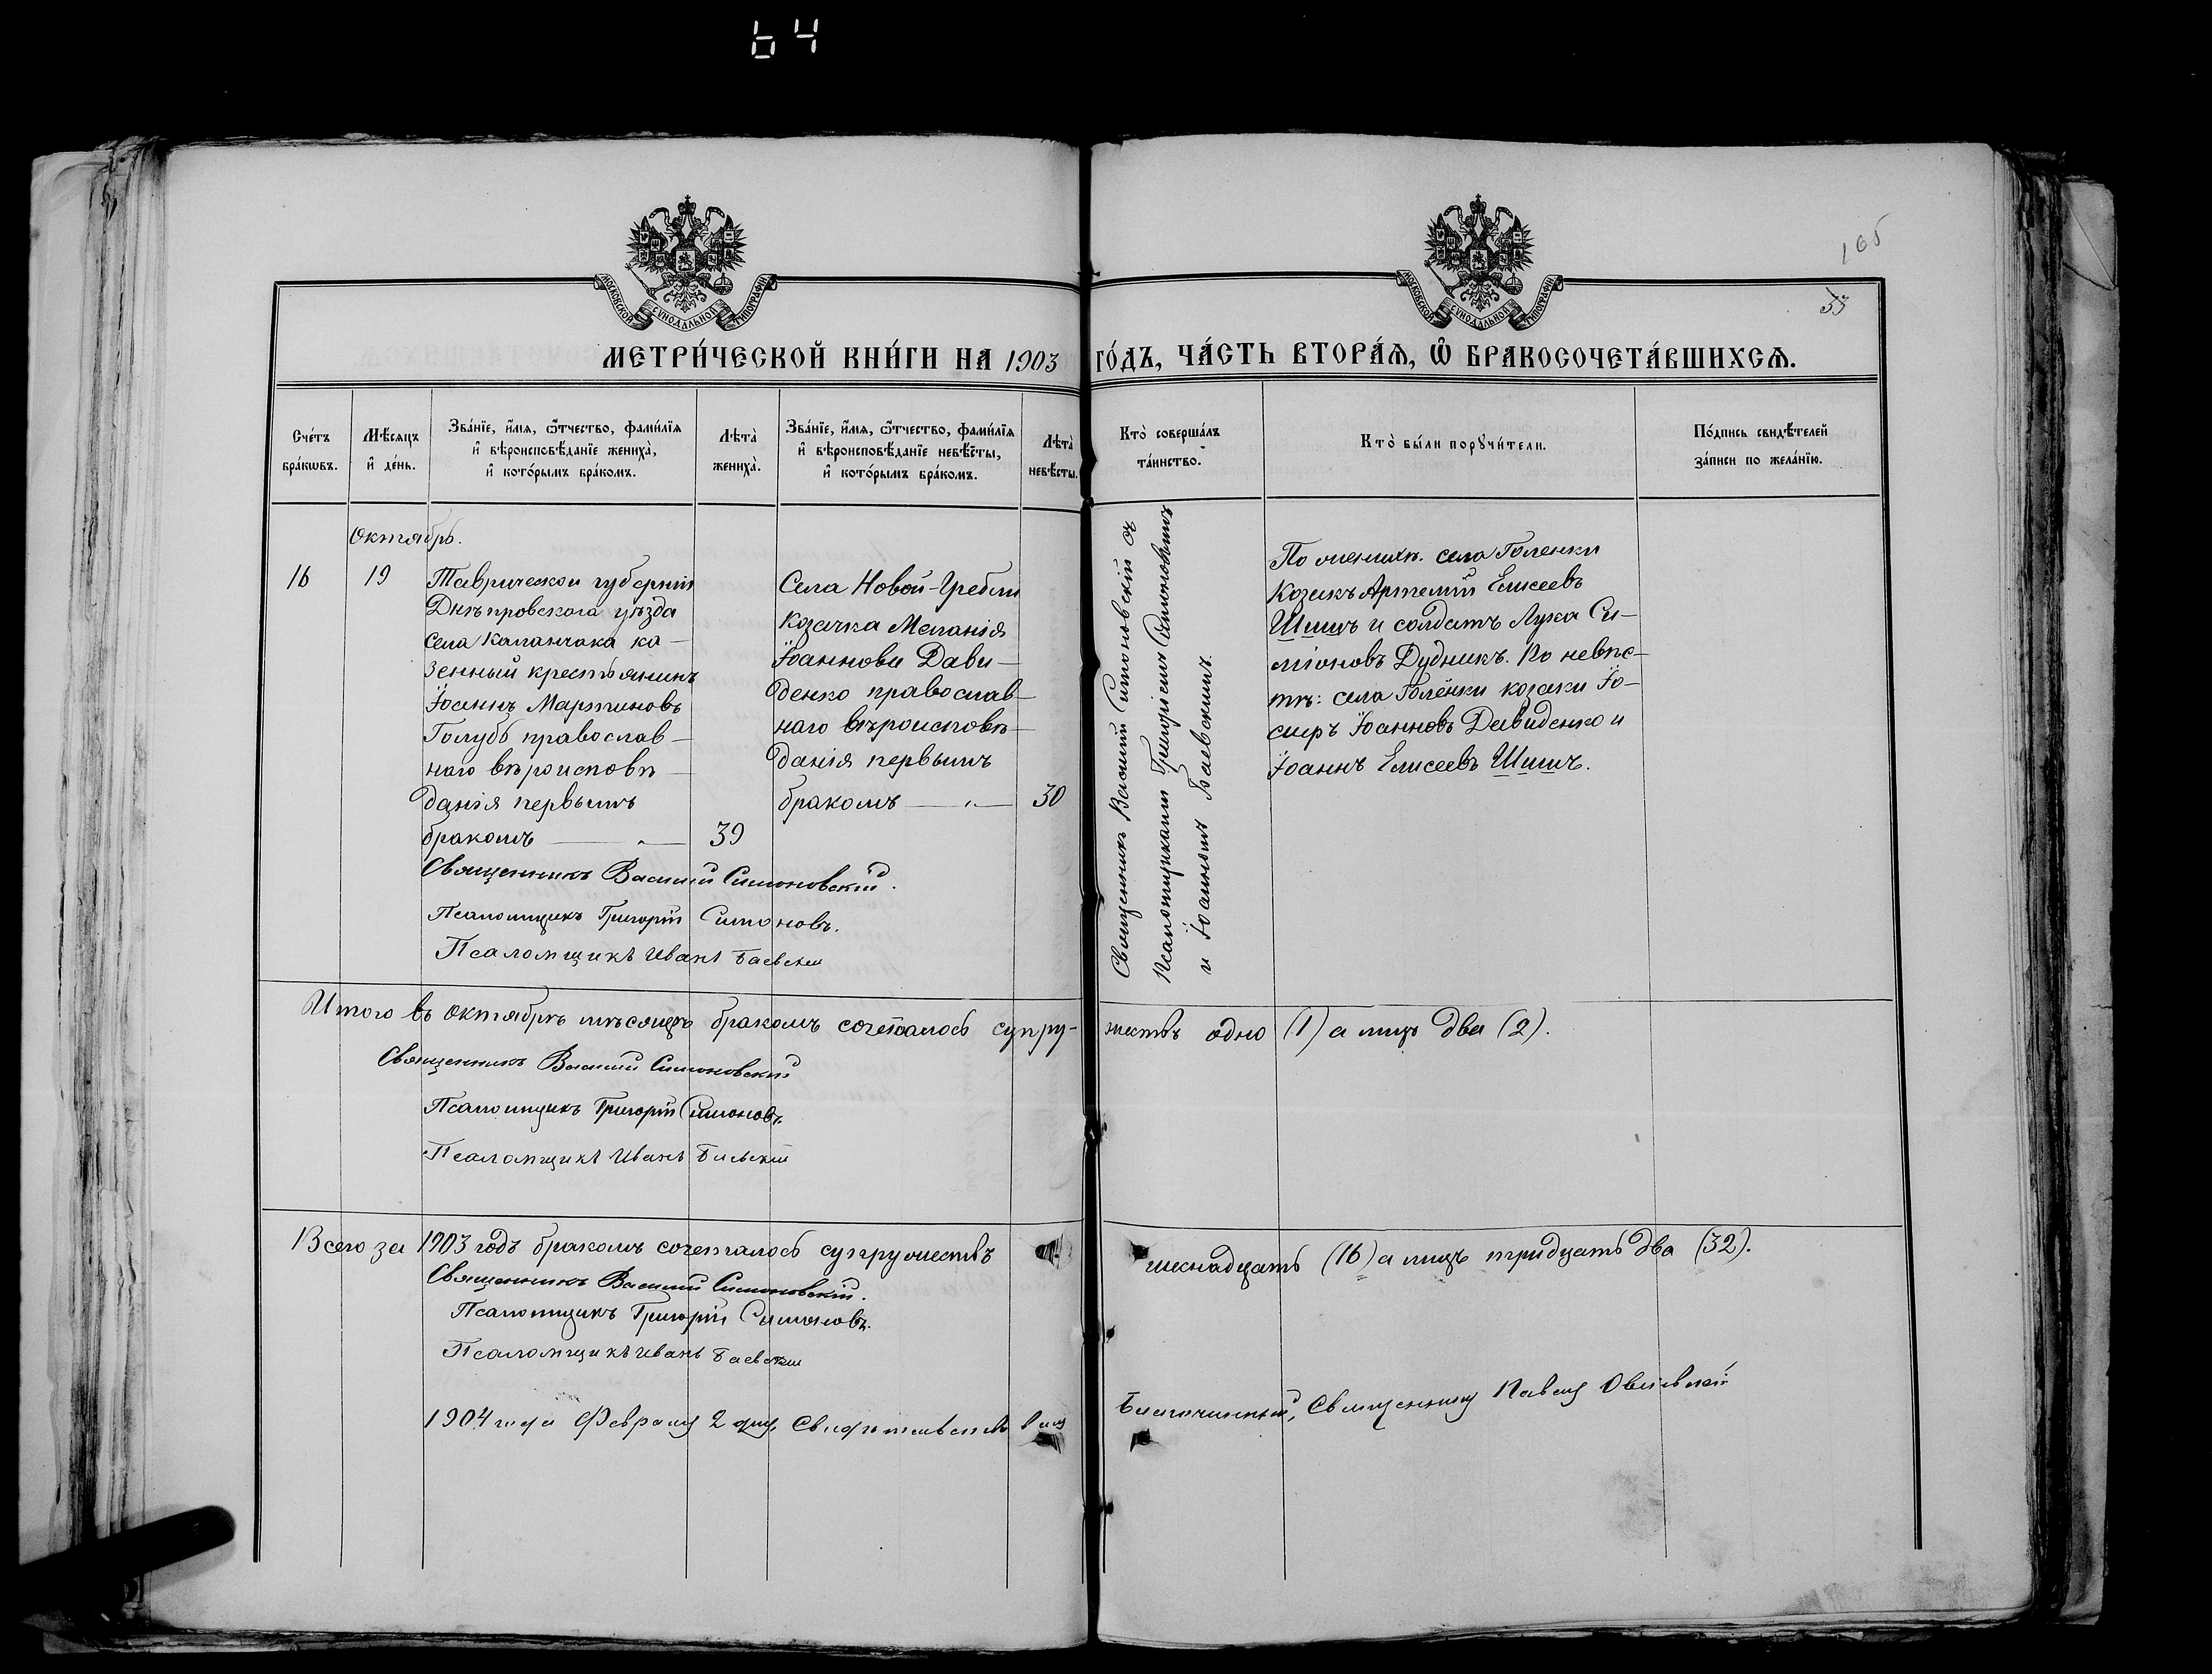 64
165
53
МОСКОВСКОЙ СУНОДАЛЬНОЙ ТИПОГРАФІИ
МОСКОВСКОЙ СУНОДАЛЬНОЙ ТИПОГРАФІИ
МЕТРИ́ЧЕСКОЙ КНИ́ГИ НА 1903 ГО́ДЪ, ЧА́СТЬ ВТОРА́Ѧ, Ѡ҆ БРАКОСОЧЕТА́ВШИХСѦ.
Сче́тъ бра́кѡвъ.
Мѣ́сѧцъ и҆ де́нь.
Зва́нїе, и҆́мѧ, ѻ҆́тчество, фами́лїѧ и҆ вѣроисповѣ́данїе жениха̀, и҆ кото́рымъ бра́комъ.
Лѣ́та̀ жениха̀.
Зва́нїе, и҆́мѧ, ѻ҆́тчество, фами́лїѧ и҆ вѣроисповѣ́данїе невѣ́сты, и҆ кото́рымъ бра́комъ.
Лѣ́та̀ невѣ́сты.
Кто̀ соверша́лъ та́инство.
Кто̀ бы́ли порꙋчи́тели.
По́дпись свидѣ́телей за́писи по жела́нїю.
Октябрь.
16
19
Таврической губерніи
Днѣпровскаго уѣзда
села Каланчака ка-
зенный крестьянинъ
Іоаннъ Мартиновъ
Голубь православ-
наго вѣроисповѣ-
данія первымъ
бракомъ
39
Села Новой-Гребли
козачка Меланія
Іоаннова Дави-
денко православ-
наго вѣроисповѣ-
данія первымъ
бракомъ
30
Священникъ Василій Симоновскій съ
Псаломщиками Григоріемъ Симоновымъ
и Іоанномъ Баевскимъ.
По женихѣ. села Голенки
козакъ Артемій Елисеевъ
Шишъ и солдатъ Лука Си-
міоновъ Дудникъ. По невѣс-
тѣ: села Голенки козаки Іо-
сифъ Іоанновъ Давиденко и
Іоаннъ Елисеевъ Шишъ.
Священникъ Василій Симоновскій.
Псаломщикъ Григорій Симоновъ.
Псаломщикъ Иванъ Баевскій
Итого въ Октябрѣ мѣсяцѣ бракомъ сочеталось супру-жествъ одно (1) а лицъ два (2).
Священникъ Василій Симоновскій
Псаломщикъ Григорій Симоновъ.
Псаломщикъ Иванъ Баевскій
Всего за 1903 годъ бракомъ сочеталось супружествъ шеснадцать (16) а лицъ тридцать два (32).
Священникъ Василій Симоновскій.
Псаломщикъ Григорій Симоновъ.
Псаломщикъ Иванъ Баевскій
1904 года Февраля 2 дня, Свидѣтельствовалъ Благочинный, Священникъ Павелъ